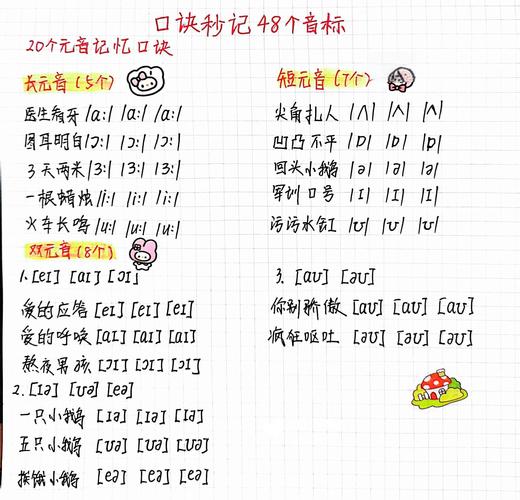 口诀秒记48个音标
20个元音记忆口诀
长元音(5个)
医生看牙 /ɑ:/ /ɑ:/ /ɑ:/
圆耳明白 /ɔ:/ /ɔ:/ /ɔ:/
3天两米 /3:/ /3:/ /3:/
一根蜡烛 /i:/ /i:/ /i:/
火车长鸣 /u:/ /u:/ /u:/
短元音(7个)
尖角扎人 /ʌ/ /ʌ/ /ʌ/
凹凸不平 /ɒ/ /ɒ/ /ɒ/
回头小鹅 /ə/ /ə/ /ə/
军训口号 /ɪ/ /ɪ/ /ɪ/
污污水缸 /ʊ/ /ʊ/ /ʊ/
双元音(8个)
1. [eɪ] [aɪ] [ɔɪ]
爱的应答 [eɪ] [eɪ] [eɪ]
爱的呼唤 [aɪ] [aɪ] [aɪ]
熬夜男孩 [ɔɪ] [ɔɪ] [ɔɪ]
2. [ɪə] [ʊə] [eə]
一只小鹅 [ɪə] [ɪə] [ɪə]
五只小鹅 [ʊə] [ʊə] [ʊə]
挨饿小鹅 [eə] [eə] [eə]
3. [aʊ] [əʊ]
你别骄傲 [aʊ] [aʊ] [aʊ]
疯狂呕吐 [əʊ] [əʊ] [əʊ]